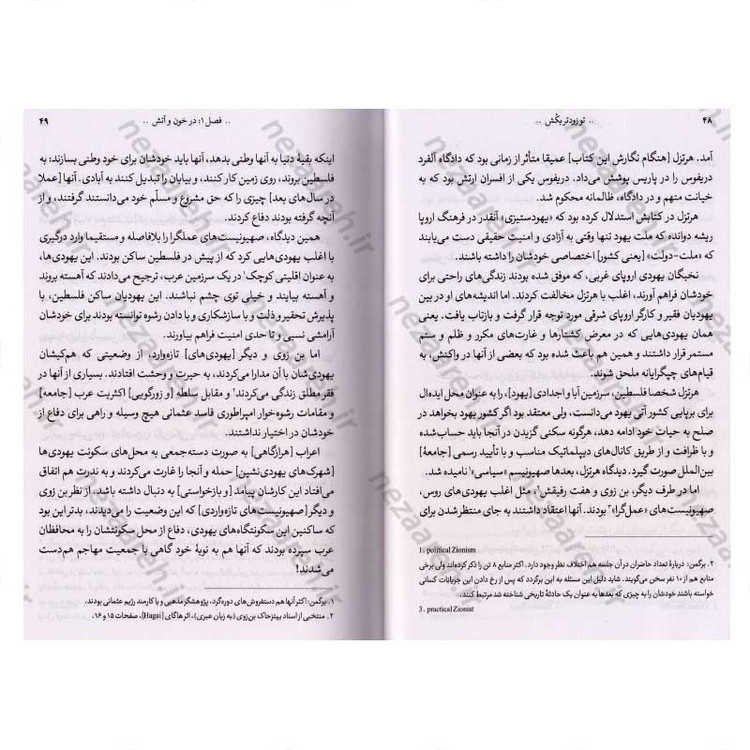 ۴۸
.. تو زودتر بکُش ..
آمد. هرتزل [هنگام نگارش این کتاب] عمیقا متأثر از زمانی بود که دادگاه آلفرد
دریفوس را در پاریس پوشش می‌داد. دریفوس یکی از افسران ارتش بود که به
خیانت متهم و در دادگاه، ظالمانه محکوم شد.
هرتزل در کتابش استدلال کرده بود که «یهودستیزی» آنقدر در فرهنگ اروپا
ریشه دوانده که ملت یهود تنها وقتی به آزادی و امنیت حقیقی دست می‌یابند
که «ملت - دولت» [یعنی کشور] اختصاصی خودشان را داشته باشند.
نخبگان یهودی اروپای غربی، که موفق شده بودند زندگی‌های راحتی برای
خودشان فراهم آورند، اغلب با هرتزل مخالفت کردند. اما اندیشه‌های او در بین
یهودیان فقیر و کارگر اروپای شرقی مورد توجه قرار گرفت و بازتاب یافت. یعنی
همان یهودی‌هایی که در معرض کشتارها و غارت‌های مکرر و ظلم و ستم
مستمر قرار داشتند و همین هم باعث شده بود که بعضی از آنها در واکنش، به
قیام‌های چپگرایانه ملحق شوند.
هرتزل شخصا فلسطین، سرزمین آبا و اجدادی [یهود]، را به عنوان محل ایده‌آل
برای برپایی کشور آتی یهود می‌دانست، ولی معتقد بود اگر کشور یهود بخواهد در
صلح به حیات خود ادامه دهد، هرگونه سکنی گزیدن در آنجا باید حساب‌شده
و با ظرافت و از طریق کانال‌های دیپلماتیک مناسب و با تأیید رسمی [جامعهٔ]
بین‌الملل صورت گیرد. دیدگاه هرتزل، بعدها صهیونیسم «سیاسی»۱ نامیده شد.
اما در طرف دیگر، بن زوی و هفت رفیقش۲، مثل اغلب یهودی‌های روس،
صهیونیست‌های «عمل‌گرا»۳ بودند. آنها اعتقاد داشتند به جای منتظر شدن برای
1. political Zionism
۲. برگمن: دربارهٔ تعداد حاضران در آن جلسه هم اختلاف نظر وجود دارد. اکثر منابع ۸ تن را ذکر کرده‌اند ولی برخی
منابع هم از ۱۰ نفر سخن می‌گویند. شاید دلیل این مسئله به این برگردد که پس از رخ دادن این جریانات کسانی
خواسته باشند خودشان را به چیزی که بعدها به عنوان یک حادثهٔ تاریخی شناخته شد مرتبط کنند.
3. practical Zionist
.. فصل ۱: در خون و آتش ..
۴۹
اینکه بقیهٔ دنیا به آنها وطنی بدهد، آنها باید خودشان برای خود وطنی بسازند: به
فلسطین بروند، روی زمین کار کنند، و بیابان را تبدیل کنند به آبادی. آنها [عملا
در سال‌های بعد] چیزی را که حق مشروع و مسلّم خود می‌دانستند گرفتند، و از
آنچه گرفته بودند دفاع کردند.
همین دیدگاه، صهیونیست‌های عملگرا را بلافاصله و مستقیما وارد درگیری
با اغلب یهودی‌هایی کرد که از پیش در فلسطین ساکن بودند. این یهودی‌ها،
به عنوان اقلیتی کوچک۱ در یک سرزمین عرب، ترجیح می‌دادند که آهسته بروند
و آهسته بیایند و خیلی توی چشم نباشند. این یهودیان ساکن فلسطین، با
پذیرش تحقیر و ذلت و با سازشکاری و با دادن رشوه توانسته بودند برای خودشان
آرامشی نسبی و تا حدی امنیت فراهم بیاورند.
اما بن زوی و دیگر [یهودی‌های] تازه‌وارد، از وضعیتی که هم‌کیشان
یهودی‌شان با آن مدارا می‌کردند، به حیرت و وحشت افتادند. بسیاری از آنها در
فقر مطلق زندگی می‌کردند و مقابل سلطه [و زورگویی] اکثریت عرب [جامعه]
و مقامات رشوه‌خوار امپراطوری فاسد عثمانی هیچ وسیله و راهی برای دفاع از
خودشان در اختیار نداشتند.
اعراب [هرازگاهی] به صورت دسته‌جمعی به محل‌های سکونت یهودی‌ها
[شهرک‌های یهودی‌نشین] حمله و آنجا را غارت می‌کردند و به ندرت هم اتفاق
می‌افتاد این کارشان پیامد [و بازخواستی] به دنبال داشته باشد. از نظر بن زوی
و دیگر [صهیونیست‌های تازه‌واردی] که این وضعیت را می‌دیدند، بدتر این بود
که ساکنین این سکونتگاه‌های یهودی، دفاع از محل سکونتشان را به محافظان
عرب سپرده بودند که آنها هم به نوبهٔ خود گاهی با جمعیت مهاجم هم‌دست
می‌شدند!
۱. برگمن: اکثر آنها هم دستفروش‌های دوره‌گرد، پژوهشگر مذهبی و یا کارمند رژیم عثمانی بودند.
۲. منتخبی از اسناد ییتزحاک بن‌زوی (به زبان عبری)، اثر هاگای [Hagai]، صفحات ۱۵ و ۱۶.
nezaareh.ir